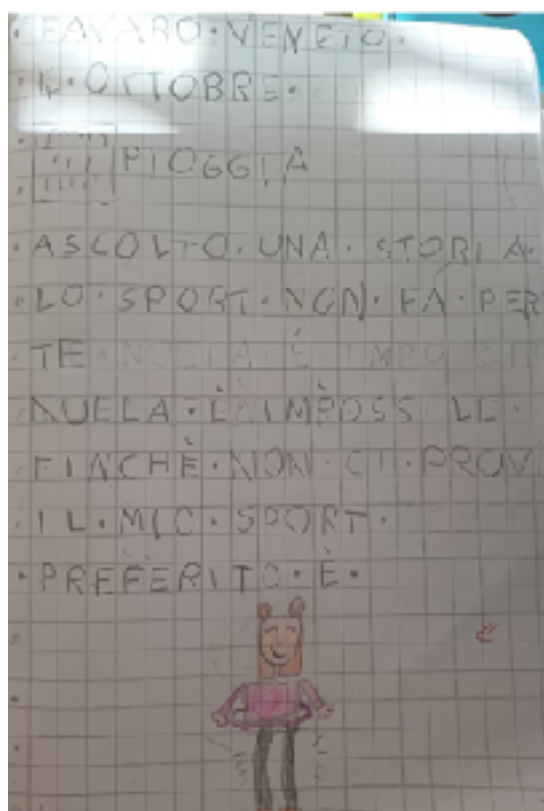 · FAVARO · VENETO ·
· OTTOBRE ·
· PIOGGIA
· ASCOLTO · UNA · STORIA ·
· LO · SPORT · NON · FA · PER
TE
NULLA · È · IMPOSSI LE ·
FINCHÈ · NON · CI · PROVI
· IL · MIO · SPORT ·
· PREFERITO · È ·